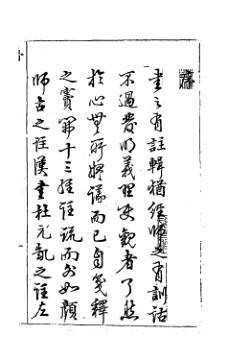 書之有註輯猶經師之有訓詁
不過發明義理使觀者了然
於心無所疑議而已自箋釋
之賾第十三經註疏而外如顏
師古之注漢書杜元凱之注左